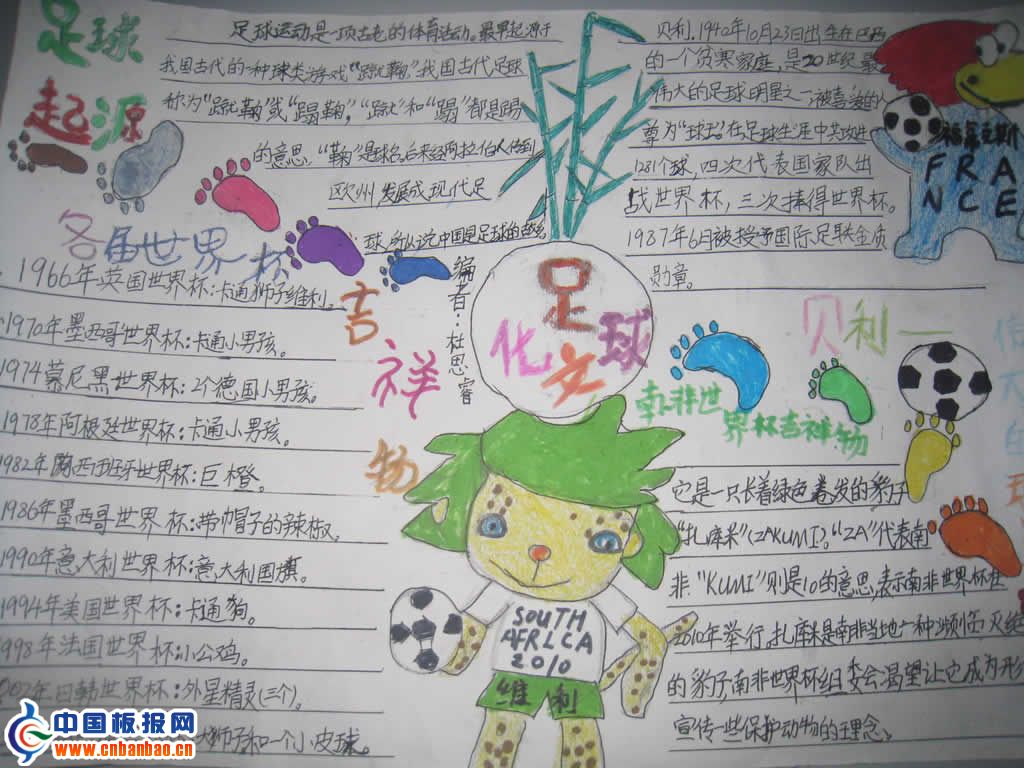 足球
起源
足球运动是一项古老的体育活动。最早起源于
我国古代的一种球类游戏“蹴鞠”我国古代足球
称为“蹴鞠”或“蹋鞠”，“蹴”和“蹋”都是踢
的意思。“鞠”是球名。后来经阿拉伯人传到
欧州，发展成现代足
球。所以说，中国是足球的故乡
各届世界杯
吉祥物
1966年英国世界杯：卡通狮子维利。
1970年墨西哥世界杯：卡通小男孩。
1974慕尼黑世界杯：2个德国小男孩。
1978年阿根廷世界杯：卡通小男孩。
1982年西班牙世界杯：巨橙。
1986年墨西哥世界杯：带帽子的辣椒。
1990年意大利世界杯：意大利国旗。
1994年美国世界杯：卡通狗。
1998年法国世界杯：小公鸡。
2002年日韩世界杯：外星精灵（三个）。
狮子和一个小皮球。
编者：杜思睿
足球
文化
贝利．1940年10月23日出生在巴西
的一个贫寒家庭，是20世纪最
伟大的足球明星之一，被喜爱的人
尊为“球王”在足球生涯中共攻进
1281个球，四次代表国家队出
战世界杯，三次捧得世界杯。
1987年6月被授予国际足联金质
勋章。
FRA
NCE
贝利一
伟大的球
南非世
界杯吉祥物
它是一只长着绿色卷发的豹子
“扎库米”（ZAKUMI）。“ZA”代表南
非．“KUMI”则是10的意思，表示南非世界杯在
2010年举行。扎库米是南非当地一种频临灭绝
的豹子，南非世界杯组委会渴望让它成为形
宣传一些保护动物的理念。
SOUTH
AFRLCA
2010
维利
中国板报网
www.cnbanbao.cn